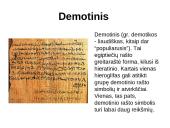 Demotinis
Demotinis (gr. demotikos
- liaudiškas, kitaip dar
"populiarusis"). Tai
egiptiečių rašto
greitaraštė forma, kilusi iš
hieratinio. Kartais vienas
hieroglifas gali atitikti
grupę demotinio rašto
simbolių ir atvirkščiai.
Vienas, tas pats,
demotinio rašto simbolis
turi labai daug reikšmių.